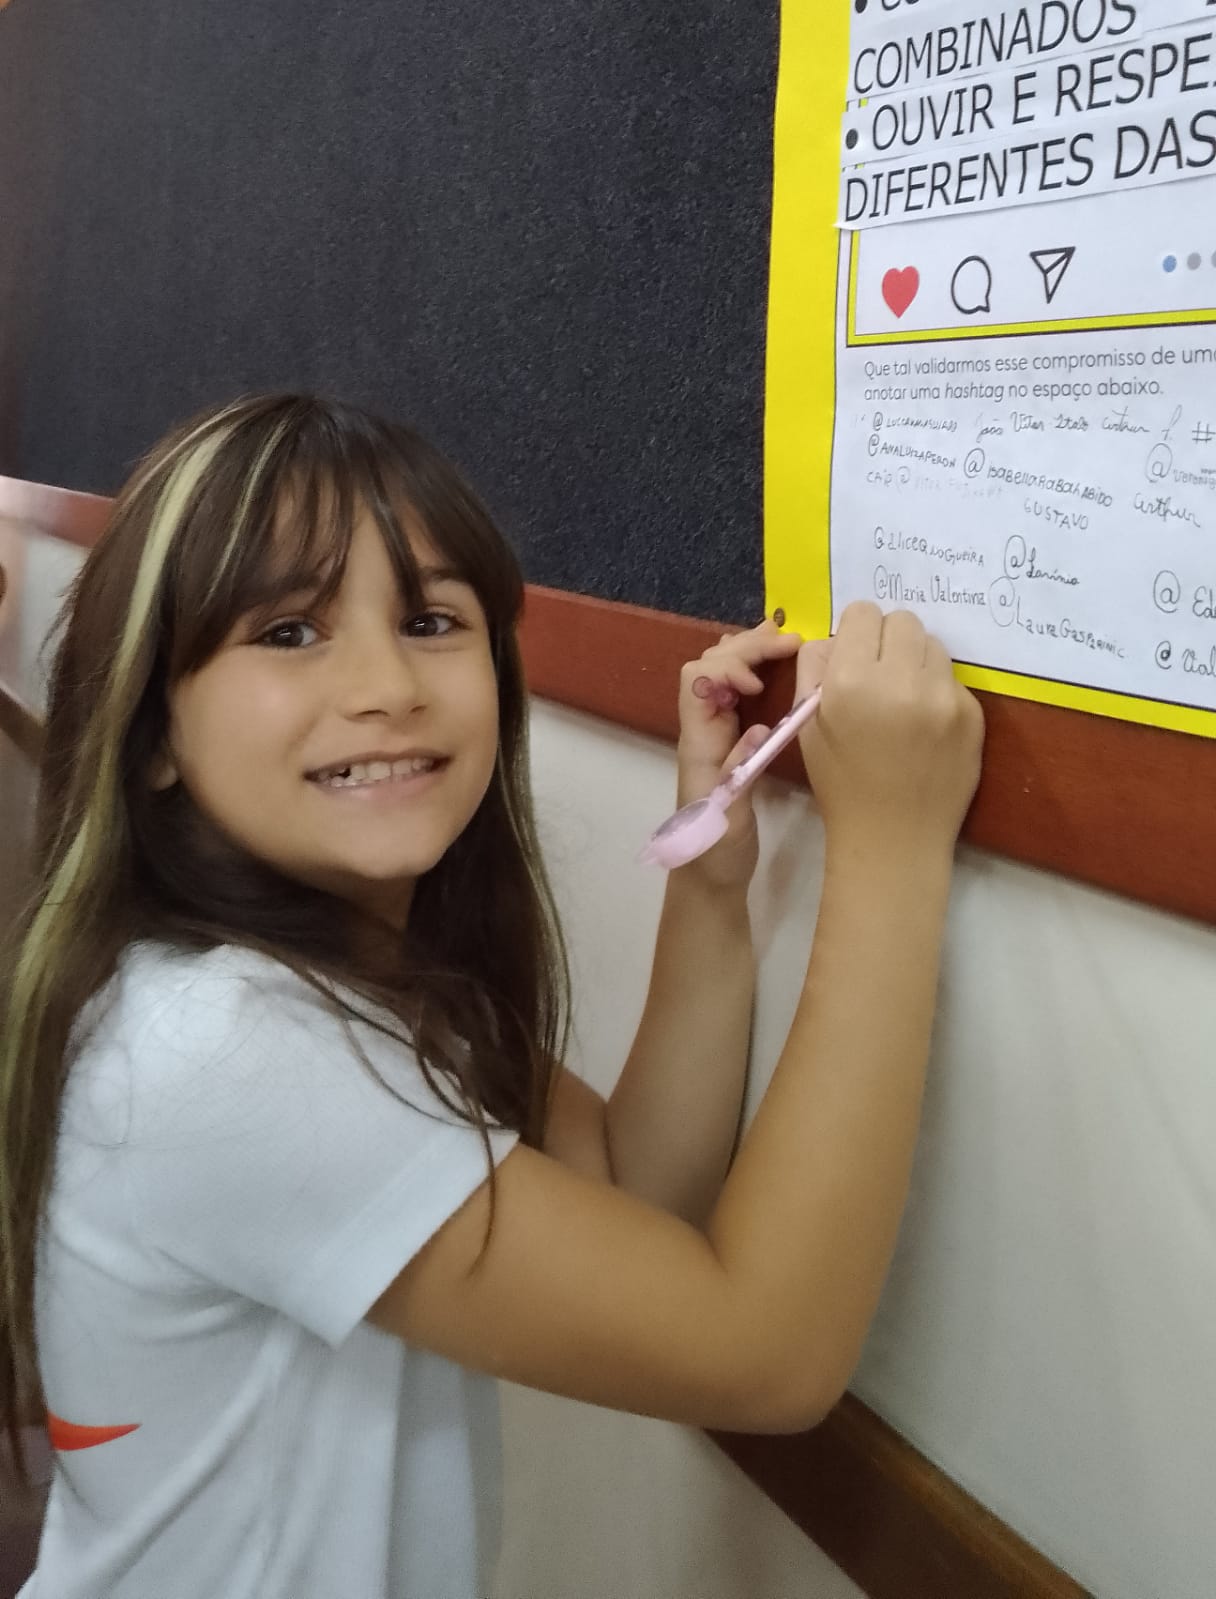 COMBINADOS
• OUVIR E RESPE
DIFERENTES DAS
Que tal validarmos esse compromisso de uma
anotar uma hashtag no espaço abaixo.
João Vitor Italo Arthur #
@ANALUIZAPERON @ISABELLARABAHABIDO @
CAIO @ Arthur
GUSTAVO
@ALICEQNOGUEIRA @Lavínia
@Maria Valentina @LauraGasparinic @ Ed
@ Val